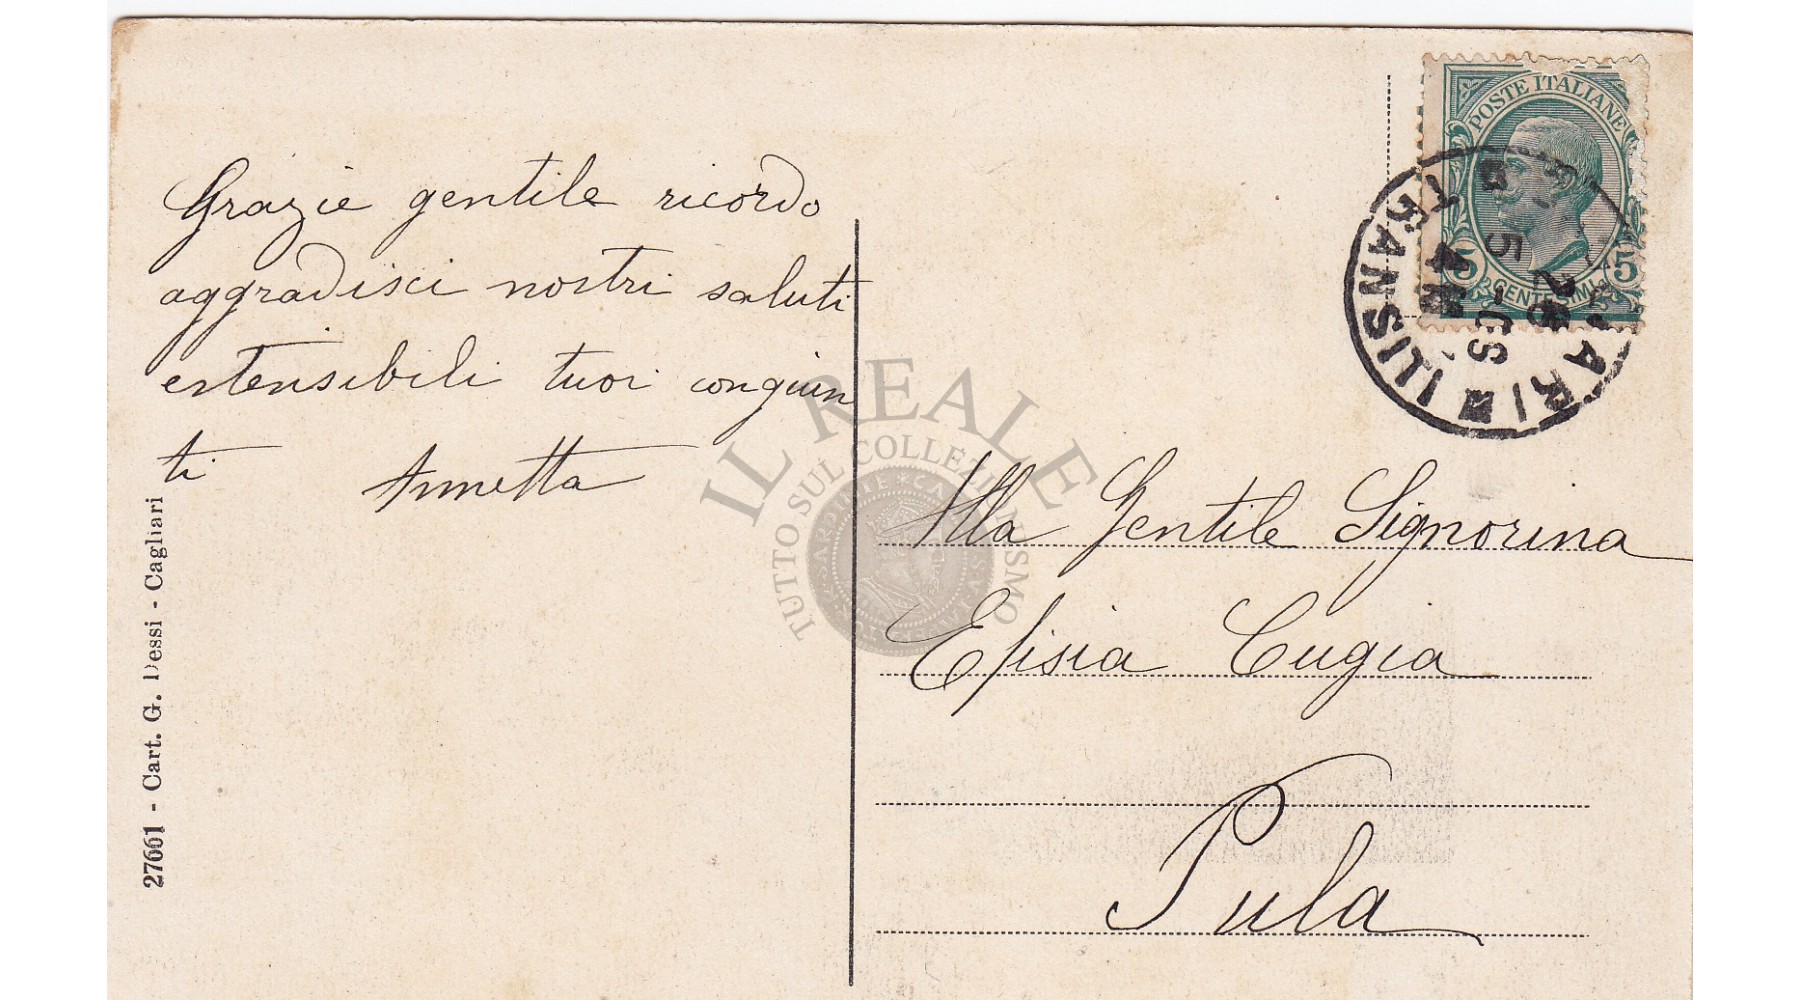 Grazie gentile ricordo
aggradisci nostri saluti
estensibili tuoi congiun
ti Annetta
27661 - Cart. G. Dessi - Cagliari
POSTE ITALIANE
5 CENTESIMI 5
IL REALE
TUTTO SUL COLLEZIONISMO
Alla Gentile Signorina
Efisia Cugia
Pula